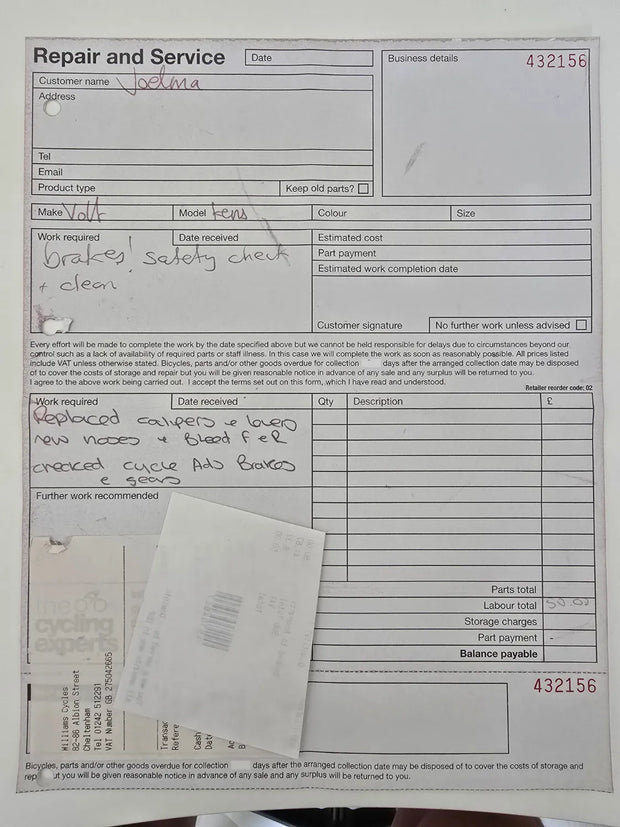 Repair and Service
Date
Business details
432156
Customer name Joelma
Address
Tel
Email
Product type
Keep old parts?
Make Volt
Model kens
Colour
Size
Work required
Date received
brakes! safety check
+ clean
Estimated cost
Part payment
Estimated work completion date
Customer signature
No further work unless advised
Every effort will be made to complete the work by the date specified above but we cannot be held responsible for delays due to circumstances beyond our
control such as a lack of availability of required parts or staff illness. In this case we will complete the work as soon as reasonably possible. All prices listed
include VAT unless otherwise stated. Bicycles, parts and/or other goods overdue for collection days after the arranged collection date may be disposed
of to cover the costs of storage and repair but you will be given reasonable notice in advance of any sale and any surplus will be returned to you.
I agree to the above work being carried out. I accept the terms set out on this form, which I have read and understood.
Retailer reorder code: 02
Work required
Date received
Qty
Description
£
Replaced calipers + levers
new hoses + Bleed F + R
checked cycle Ads Brakes
e gears
Further work recommended
Parts total
Labour total 50.00
Storage charges
Part payment -
Balance payable
the
cycling
experts
Williams Cycles
82-86 Albion Street
Cheltenham
Tel 01242 512291
VAT Number GB 275042665
432156
Bicycles, parts and/or other goods overdue for collection days after the arranged collection date may be disposed of to cover the costs of storage and
rep ut you will be given reasonable notice in advance of any sale and any surplus will be returned to you.